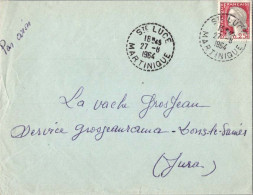 Par avion
STE LUCE
15H45
27-8
1964
MARTINIQUE
STE LUCE
1964
MARTINIQUE
La vache Grosjean
Service grosjeanrama - Lons-le-Saunier
(Jura)